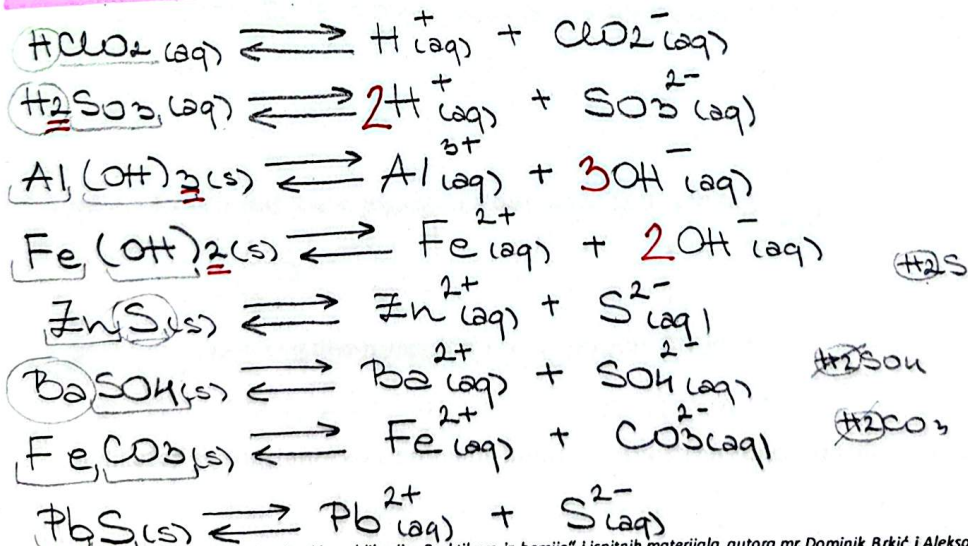 HClO2 (aq) ⇌ H⁺(aq) + ClO2⁻(aq)
H2SO3 (aq) ⇌ 2H⁺(aq) + SO3²⁻(aq)
Al(OH)3(s) ⇌ Al³⁺(aq) + 3OH⁻(aq)
Fe(OH)2(s) ⇌ Fe²⁺(aq) + 2OH⁻(aq)
H2S
ZnS(s) ⇌ Zn²⁺(aq) + S²⁻(aq)
BaSO4(s) ⇌ Ba²⁺(aq) + SO4²⁻(aq) H2SO4
FeCO3(s) ⇌ Fe²⁺(aq) + CO3²⁻(aq) H2CO3
PbS(s) ⇌ Pb²⁺(aq) + S²⁻(aq)
i ispitnih materijala, autora mr Dominik Brkić i Aleksa